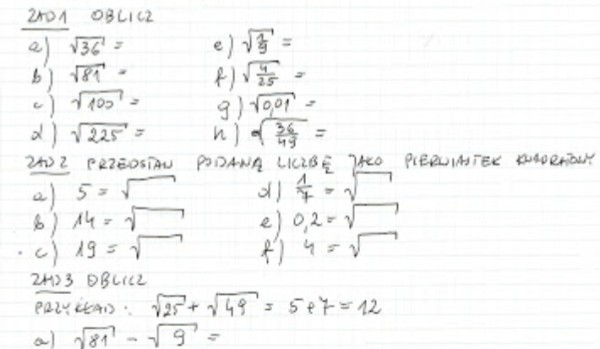 ZAD1 OBLICZ
a) √36 = e) √1/9 =
b) √81 = f) √4/25 =
c) √100 = g) √0,01 =
d) √225 = h) √36/49 =
ZAD2 PRZEDSTAW PODANĄ LICZBĘ JAKO PIERWIASTEK KWADRATOWY
a) 5 = √ d) 1/7 = √
b) 14 = √ e) 0,2 = √
c) 19 = √ f) 4 = √
ZAD3 OBLICZ
PRZYKŁAD: √25 + √49 = 5+7 = 12
a) √81 - √9 =